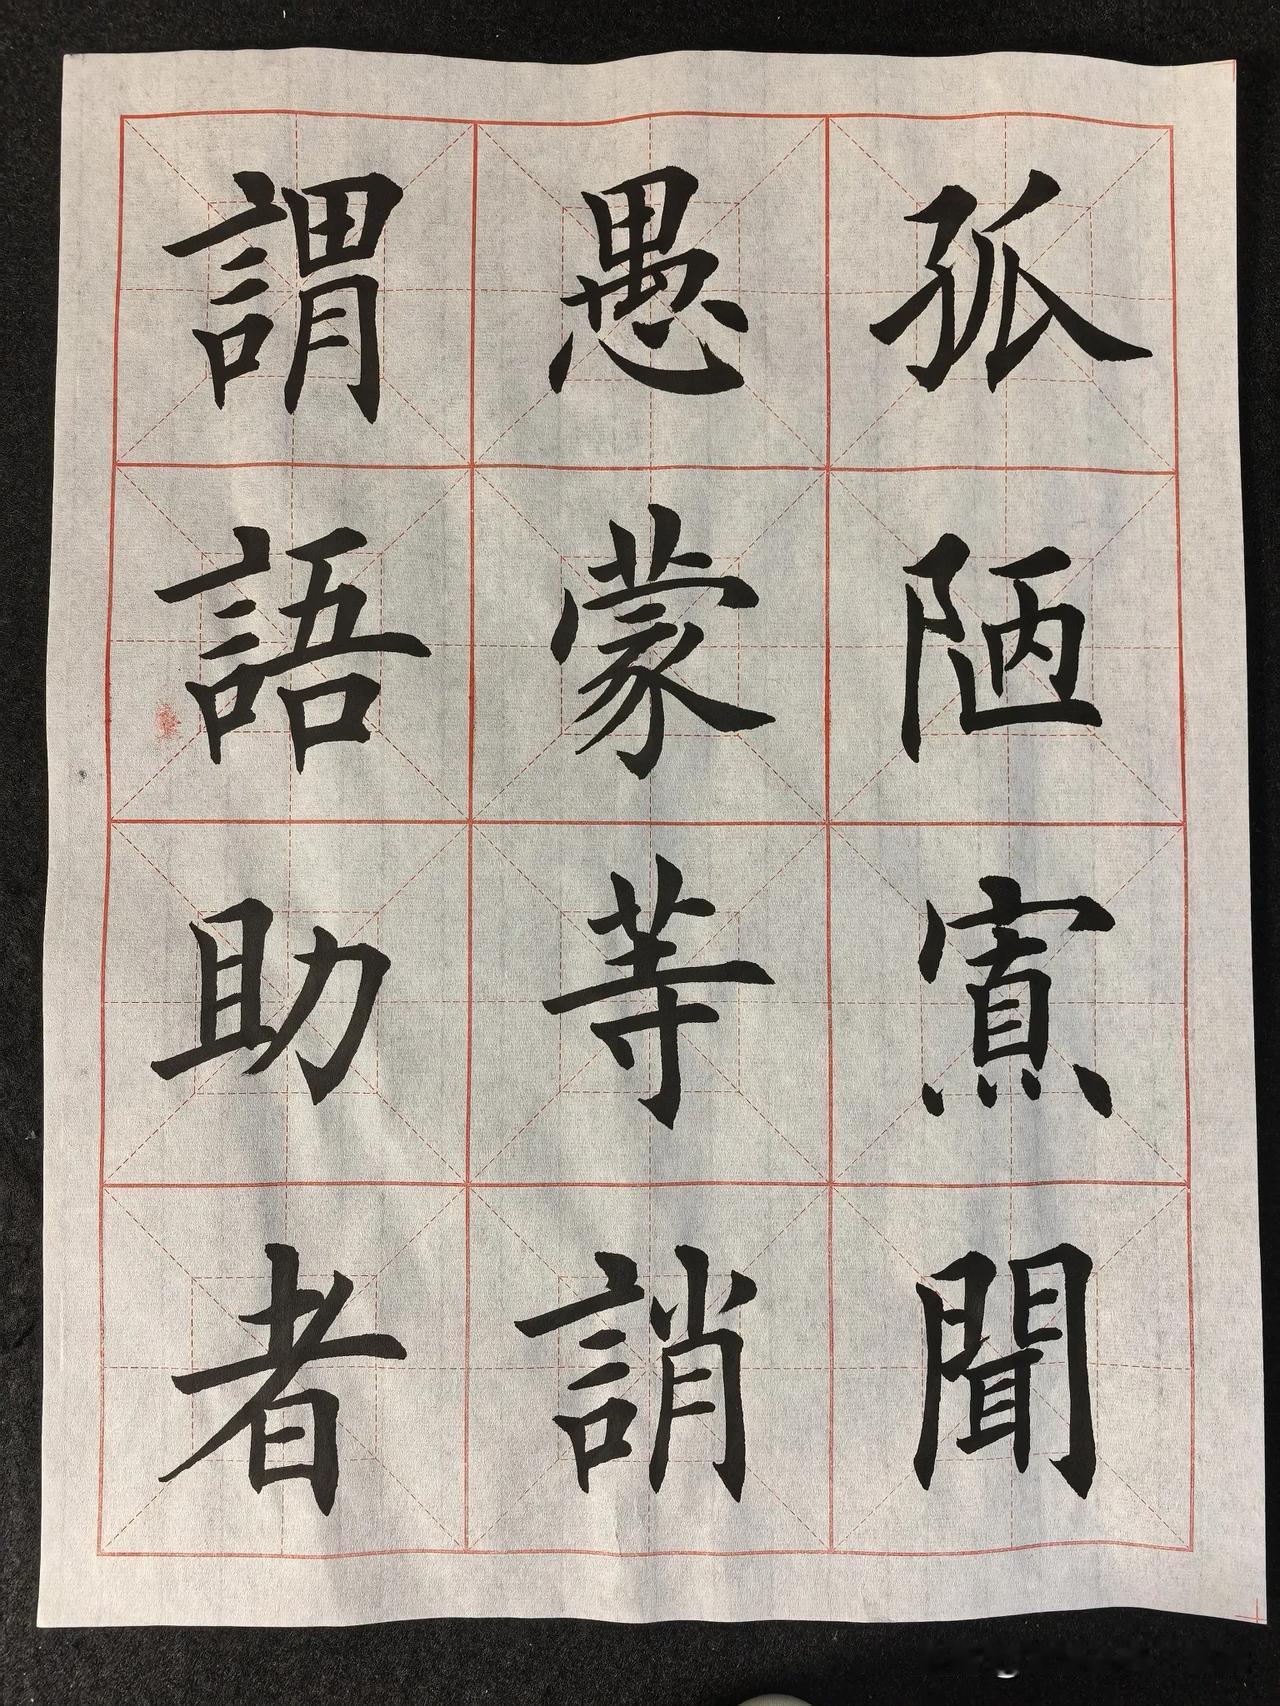 孤陋寡聞
愚蒙等誚
謂語助者